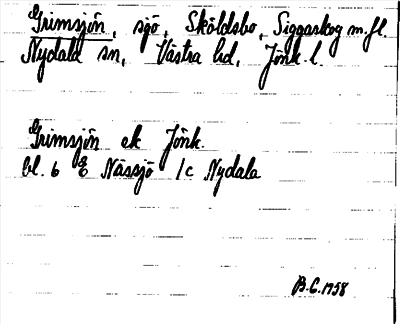 Grimsjön, sjö, Sköldsbo, Siggaskog m.fl.
Nydala sn, Västra hd, Jönk. l.
Grimsjön ek Jönk.
bl. 6 E Nässjö /c Nydala
B.C. 1958